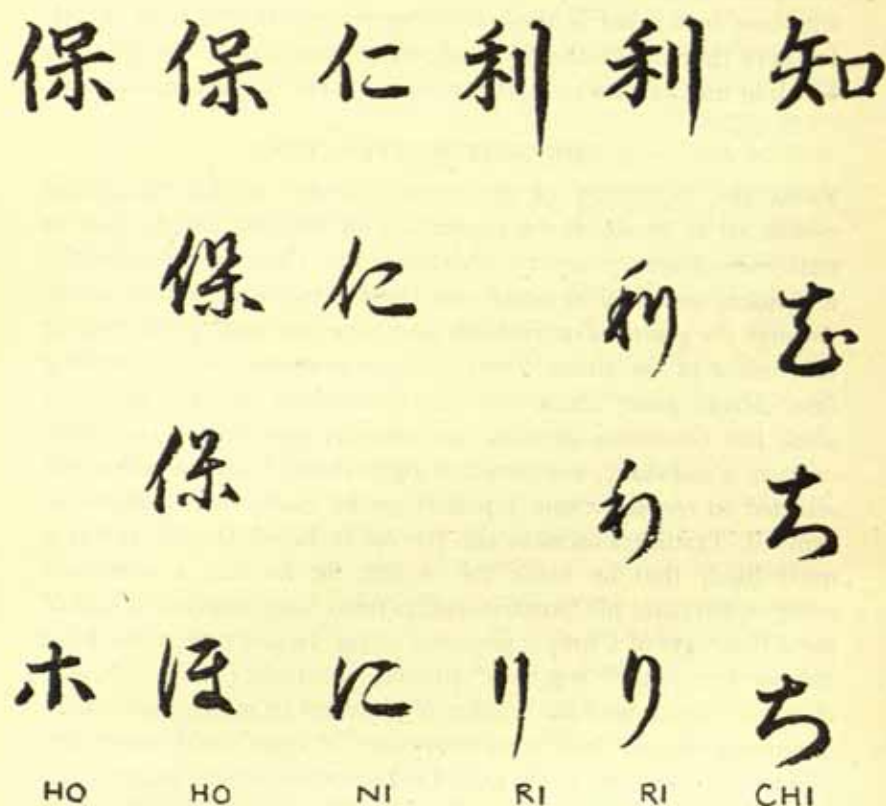 保 保 仁 利 利 知
保 仁 利 知
保 利 ち
ホ ほ に リ り ち
HO HO NI RI RI CHI